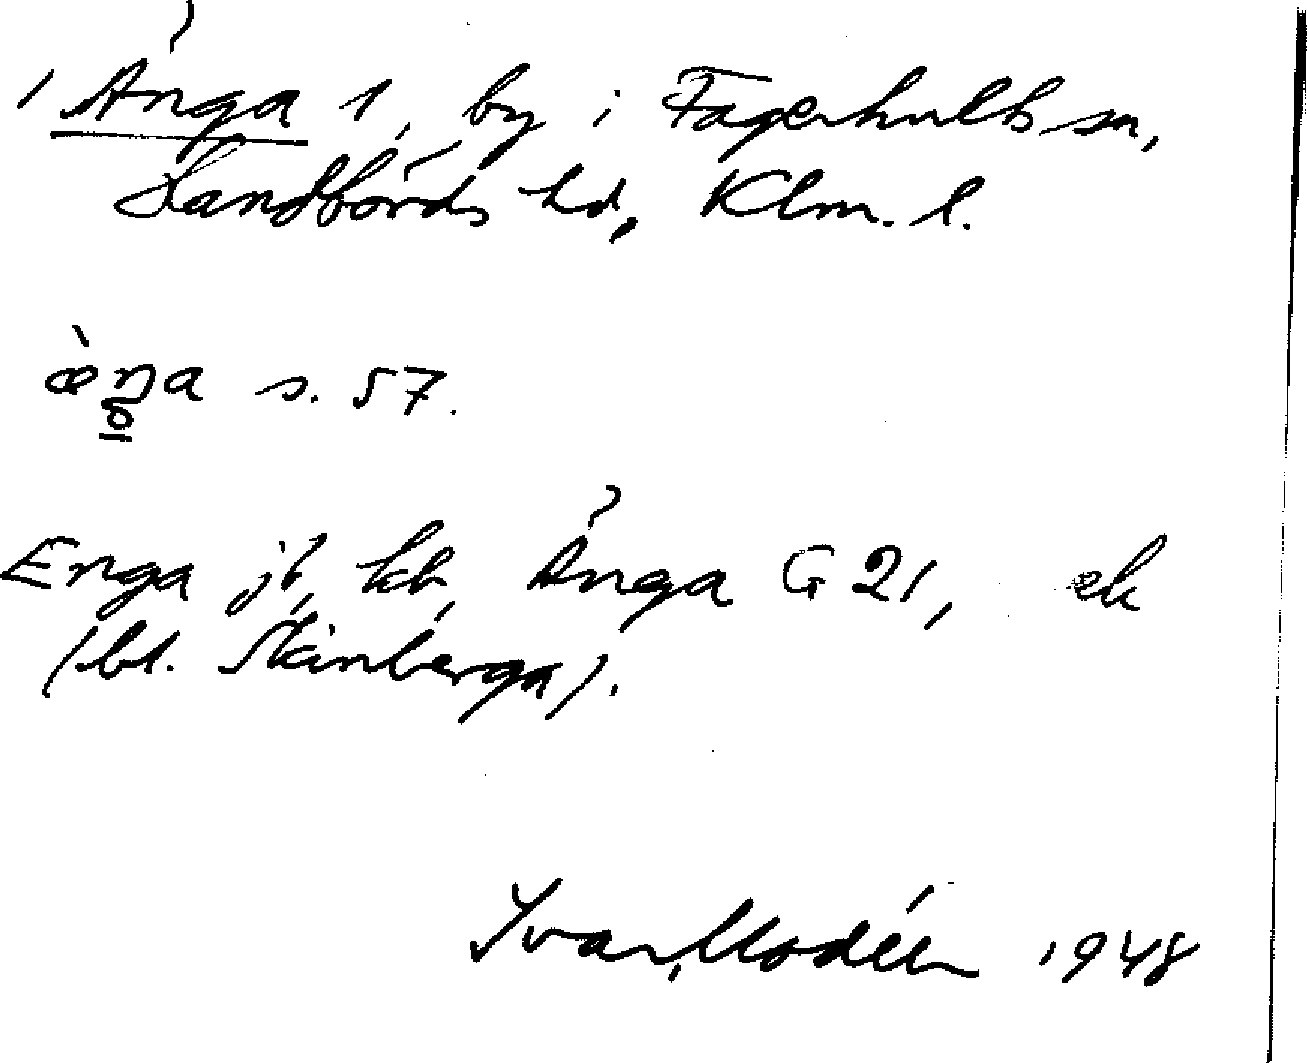 Änga 1, by i Fagerhults sn,
Handbörds hd, Klm. l.
æ̀ŋa s. 57.
Enga jb, kb, Änga G 21, ek
(bl. Skinberga).
Ivar Modéer 1948